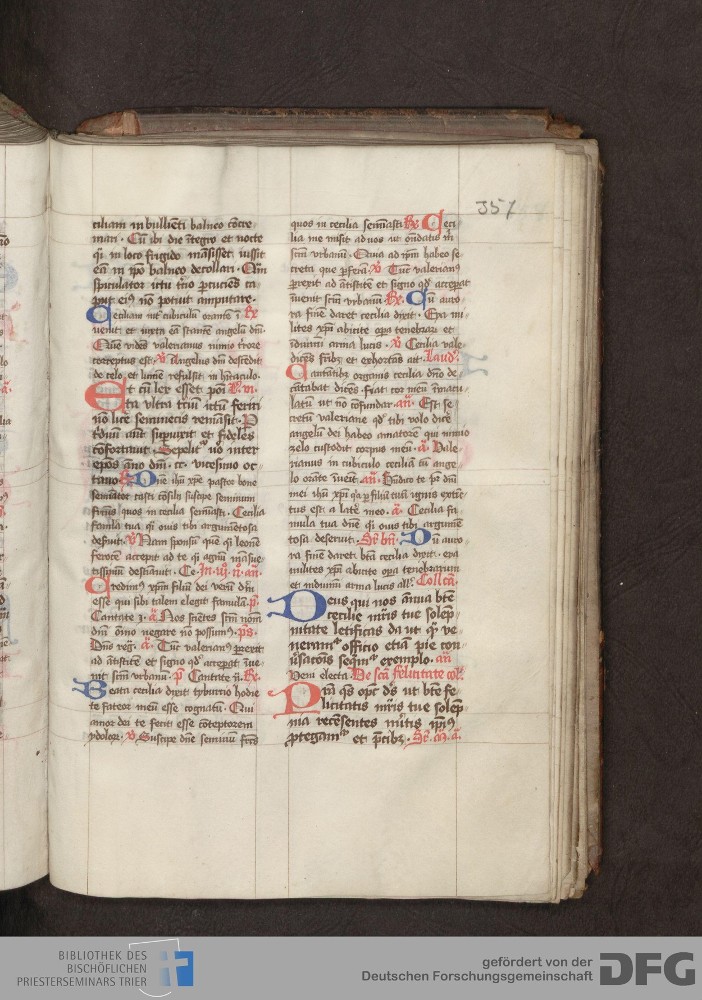 357
ciliam in bullienti balneo concre
mari. Cu ibi die integro et nocte
qi in loco frigido mansisset iussit
ea in ipo balneo decollari. Qm
spiculator ictu tercio percuciens ca
put eius no potuit amputare.
Ceciliam int cubiculu orante i Rx
uenit et iuxta ea stante angelu dni.
Que videns valerianus nimio timore
correptus est. V Angelus dni descendit
de celo et lumen refulsit in habitaculo.
Et cu lex esset poi L. vi.
sta ultra terciu ictum feriri
no licet semineces remansit. P
triduu aut supuixit et fideles
confortauit. Sepelit uo inter
epos anno dni. cc. vicesimo oc
tauo. Rx Dne ihu xpe pastor bone
seminator casti consilij suscipe seminum
fructus quos in cecilia seminasti. Cecilia
famula tua qi ouis tibi argumentosa
deseruit. V Nam sponsu que qi leone
feroce accepit ad te qi agnu mansue
tissimu destinauit. Ce. In iij. n. an.
Credimus xpm filiu dei veru dm
esse qui sibi talem elegit famula. p.
Cantate j. A Nos scientes scm nom
dni omo negare no possumus. ps.
Dns reg. A Tuc valerianus perrexit
ad antistite et signo qd acceperat inue
nit scm urbanu. p Cantate ij. Rx.
Beata cecilia dixit tyburcio hodie
te fateor meu esse cognatu. Qui
amor dei te fecit esse contemptorem
ydolor. V Suscipe dne seminu fructus
quos in cecilia seminasti Rx Ceci
lia me misit ad uos ut ostendatis m
scm urbanu. Quia ad ipm habeo se
creta que perfera. V Tuc valerianus
perrexit ad antistite et signo qd acceperat
inuenit scm urbanu. Rx. Cu auro
ra fine daret cecilia dixit. Eya mi
lites xpi abicite opa tenebrar et
induimi arma lucis. V Cecilia vale
dicens fribz et exhortans ait. Laud.
Cantantibz organis cecilia dno de
cantabat dicens fiat cor meu immacu
latu ut no confundar. an. Est se
cretu valeriane qd tibi volo dice
angelu dei habeo amatore qui nimio
zelo custodit corpus meu. A Vale
rianus in cubiculo cecilia cu ange
lo orante inuenit. an. Bndico te pr dni
mei ihu xpi qa p filiu tuu ignis extinc
tus est a latere meo. A Cecilia fa
mula tua dne qi ouis tibi argumen
tosa deseruit. Sr bn. Du auro
ra fine daret bta cecilia dixit. eya
milites xpi abicite opa tenebrarum
et induimi arma lucis all. Collcta.
Deus qui nos annua bte
cecilie mris tue solep
nitate letificas da ut qi ve
neramur officio etia pie con
uersacois sequamur exemplo. an.
Vem electa De sca felicitate col.
Pra qs opc ds ut bte fe
licitatis mris tue solep
nia recensentes meritis ipius
protegamur et pcibz. Sr. A.
BIBLIOTHEK DES
BISCHÖFLICHEN
PRIESTERSEMINARS TRIER
gefördert von der
Deutschen Forschungsgemeinschaft
DFG